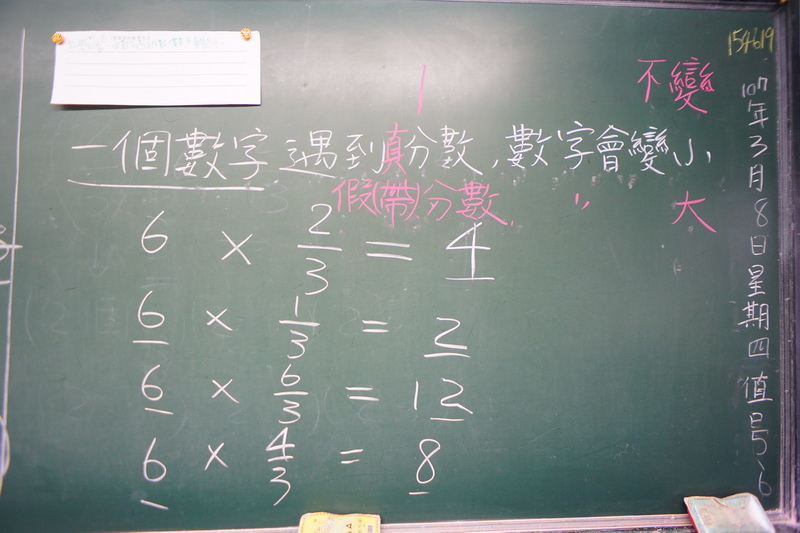 154619
1 不變
一個數字遇到真分數，數字會變小
假(帶)分數，〃大
6 × 2/3 = 4
6 × 1/3 = 2
6 × 6/3 = 12
6 × 4/3 = 8
107年3月8日星期四值日5、6